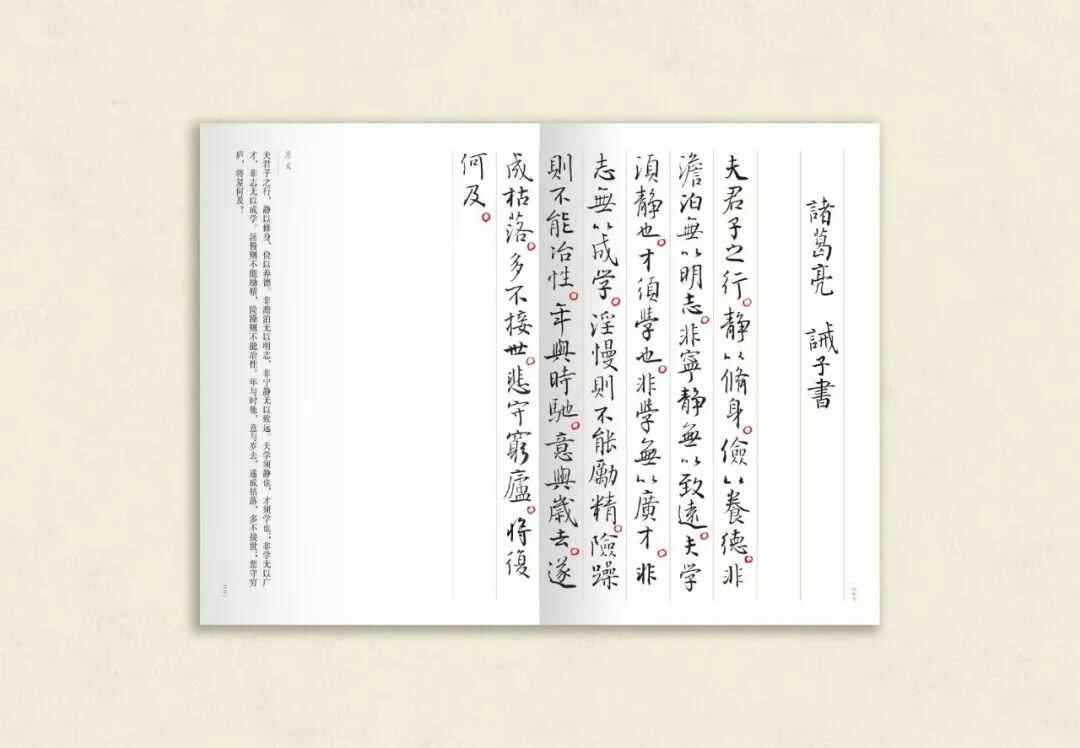 諸葛亮 誡子書
夫君子之行。静以脩身。儉以養德。非
澹泊無以明志。非寧静無以致遠。夫学
須静也。才須學也。非學無以廣才。非
志無以成学。淫慢則不能勵精。險躁
則不能冶性。年與時馳。意與歳去。遂
成枯落。多不接世。悲守窮廬。将復
何及。
原文
夫君子之行，静以修身，俭以养德。非澹泊无以明志，非宁静无以致远。夫学须静也，才须学也；非学无以广
才，非志无以成学。淫慢则不能励精，险躁则不能冶性。年与时驰，意与岁去，遂成枯落，多不接世；悲守穷
庐，将复何及？